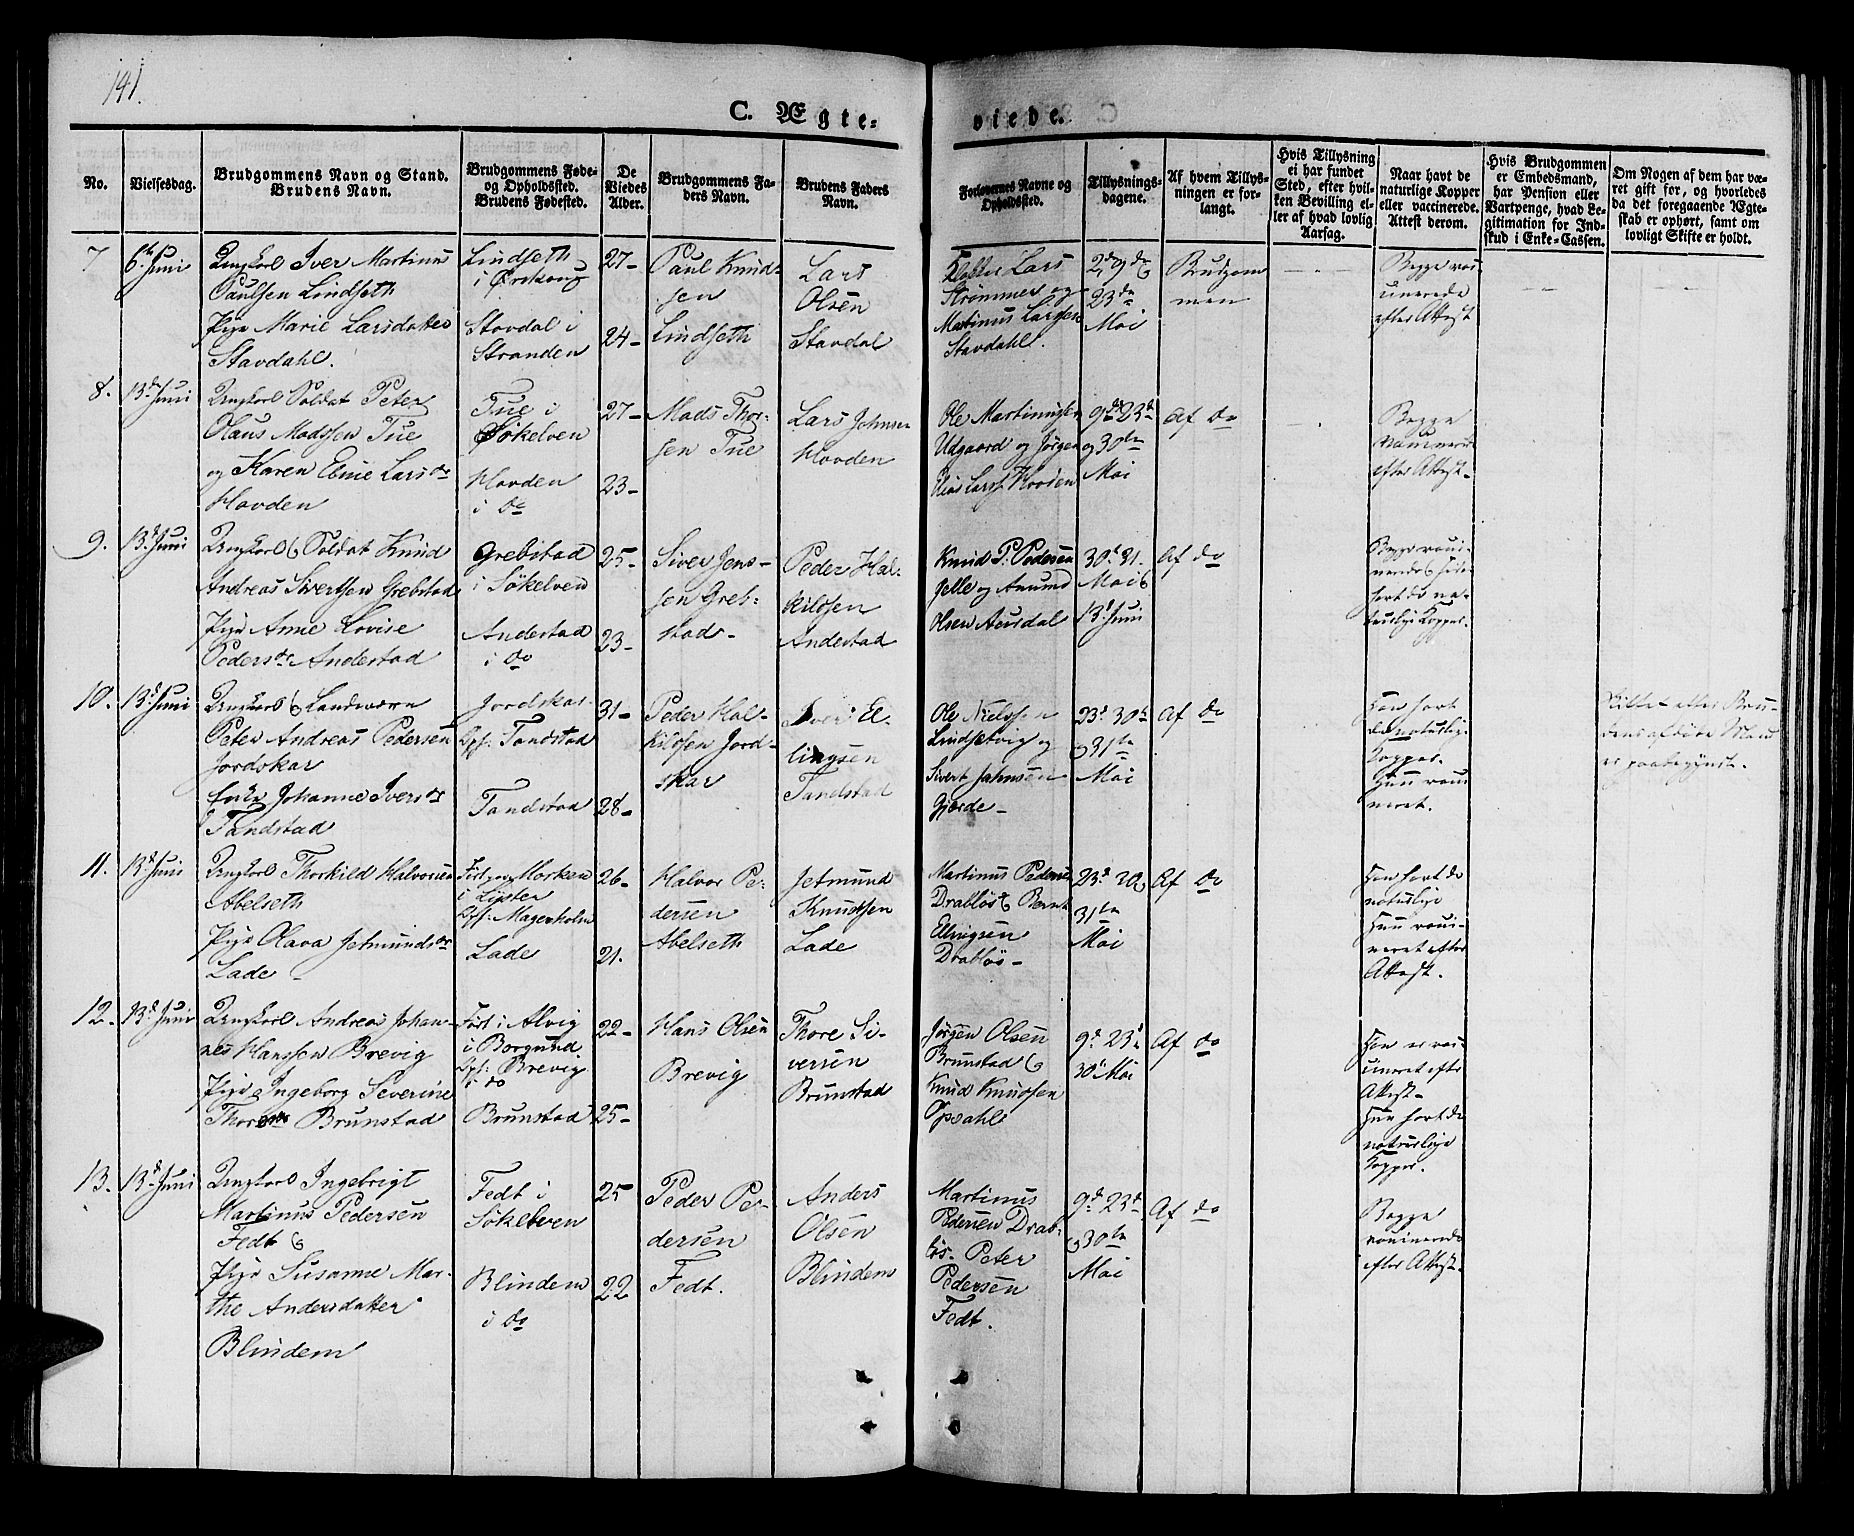 141.
C. Ægte-
viede.
No.
Vielsesdag.
Brudgommens Navn og Stand.
Brudens Navn.
Brudgommens Føde-
og Opholdssted.
Brudens Fødested.
De
Viedes
Alder.
Brudgommens Fa-
ders Navn.
Brudens Faders
Navn.
Forlovernes Navne og
Opholdssted.
Tillysnings-
dagene.
Af hvem Tillys-
ningen er for-
langt.
Hvis Tillysning
ei har fundet
Sted, efter hvil-
ken Bevilling el-
ler af hvad lovlig
Aarsag.
Naar havt de
naturlige Kopper
eller vaccinerede.
Attest derom.
Hvis Brudgommen
er Embedsmand,
har Pension eller
Vartpenge, hvad Le-
gitimation for Ind-
skud i Enke-Cassen.
Om Nogen af dem har væ-
ret gift før, og hvorledes
da det foregaaende Ægte-
skab er ophørt, samt om
lovligt Skifte er holdt.
7
6te Juni
Ungkarl Iver Martinus
Paulsen Lindseth
Pige Marie Larsdatter
Stavdahl.
Lindseth
i Ørskoug
Stavdal i
Stranden
27-
24-
Paul Knud-
sen
Lindseth
Lars
Olsen
Stavdal
Lars
Strømmes og
Martinus Larsen
Stavdahl.
2d 9d &
23de
Mai
Brudgom
men
Begge vac-
cinerede
efter Attest
8.
13d Juni
Ungkarl Soldat Peter
Olaus Madssen Tue
og Karen Eline Larsdr
Hovden
Tue i
Søkelven
Hovden
i do
27-
23-
Mads Thor-
sen Tue
Lars Johnsen
Hovden
Ole Martinussen
Udgaard og Jørgen
Elias Larss Hovden
9de 23d
og 30te
Mai
Af do
Begge
vaccinerede
efter Attest-
9.
13d Juni
Ungkarl & Soldat Knud
Andreas Sivertsen Grebstad
Pige Anne Lovise
Pedersdr Andestad
Grebstad
i Søkelven
Andestad
i do
25-
23-
Siver Jens-
sen Greb-
stad-
Peder Hal-
kildsen
Andestad
Knud P. Pedersen
Jelle og Amund
Olsen Aursdal
30d 31.
Mai &
13d Juni
Af do
Begge vacci-
nerede
havt de na-
turlige Kopper.
10.
13d Juni
Ungkarl & Landværn
Peter Andreas Pedersen
Jordskar
Enke Johanne Iversdr
Tandstad
Jordskar
Opf: Tandstad
Tandstad
31-
28-
Peder Hal-
kildsen Jord-
skar
Iver El-
lingsen
Tandstad
Ole Nielssen
Lindsetvig og
Sivert Jahnsen
Gjærde-
23d 30te
& 31te
Mai
Af do
Han havt
de naturlige
Kopper.
Hun vacci
neret.
Skiftet efter Bru-
dens afdøde Mand
er paabegyndt.
11.
13d Juni
Ungkarl Thorkild Halvorsen
Abelseth
Pige Olava Jetmundsdr
Lade-
Morken
i Lyster
Opf: Magerholm
Lade
26-
21.
Halvor Pe-
dersen
Abelseth
Jetmund
Knudsen
Lade
Martinus Pedersen
Drabløs & Bernt
Ellingsen
Drabløs-
23d 30 &
31te
Mai
Af do
Han havt de
naturlige
Hun vacci-
neret efter
Attest.
12.
13d Juni
Ungkarl Andreas Johan-
nes Hanssen Brevig
Pige Ingeborg Severine
Thoresdr Brunstad
Født i Alvig
i Borgund
Opf: Brevig
i do
Brunstad
22-
25-
Hans Olsen
Brevig
Thore Si-
versen
Brunstad
Jørgen Olsen
Brunstad &
Knud Knudsen
Opsahl
9d 23d
30d Mai
Af do
Han er vac-
cineret efter
Attest-
Hun havt de
naturlige
Kopper.
13.
13d Juni
Ungkarl Ingebrigt
Martinus Pedersen
Fedt &
Pige Susanne Mar-
the Andersdatter
Blindem
Fedt i
Søkelven
Blindem
i do
25
22
Peder Pe-
dersen
Fedt.
Anders
Olsen
Blindem
Martinus
Pedersen Drab-
løs- Peter
Pedersen
Fedt.
9d 23d
& 30te
Mai
Af do
Begge
vaccinerede
efter Attest-